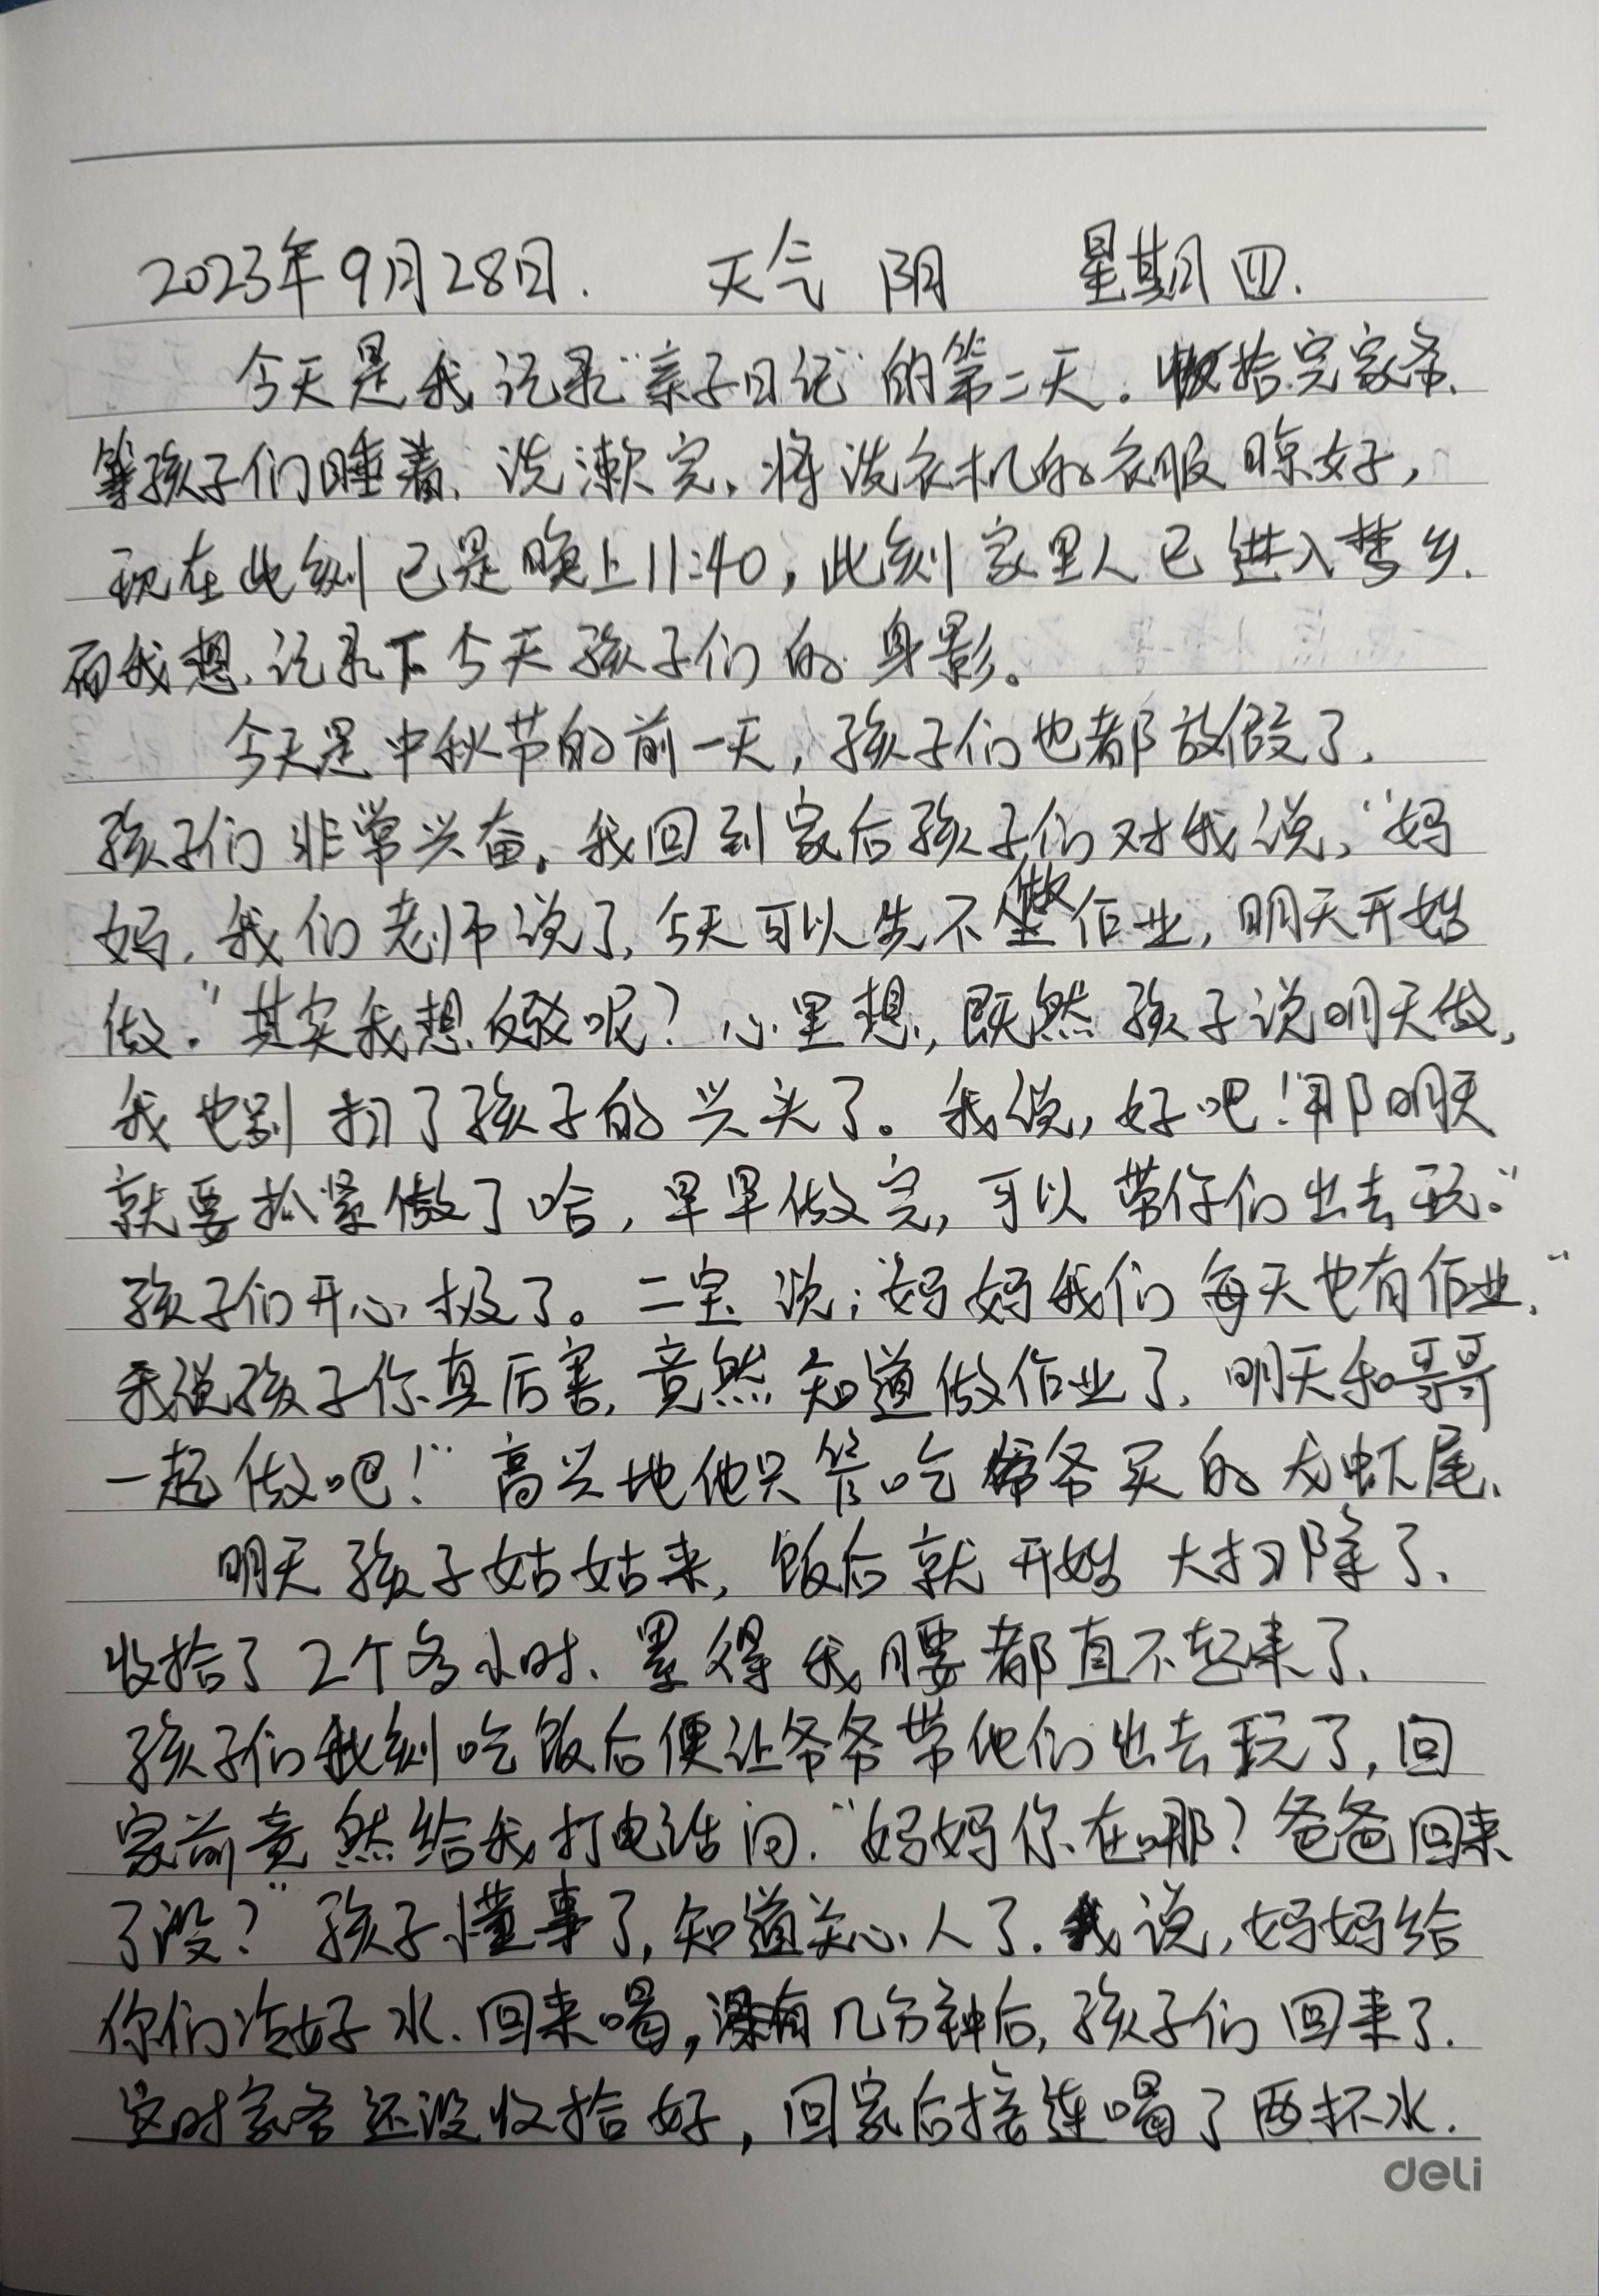 2023年9月28日. 天气 阴 星期四.
今天是我记录“亲子日记”的第二天. 收拾完家务.
等孩子们睡着, 洗漱完, 将洗衣机的衣服晾好,
现在此刻已是晚上11:40, 此刻家里人已进入梦乡.
而我想记录下今天孩子们的身影。
今天是中秋节的前一天, 孩子们也都放假了.
孩子们非常兴奋. 我回到家后孩子们对我说, “妈
妈, 我们老师说了, 今天可以先不做作业, 明天开始
做.” 其实我想 呢? 心里想, 既然孩子说明天做,
我也别扫了孩子的兴头了。我说, 好吧! “那明天
就要抓紧做了哈, 早早做完, 可以带你们出去玩。”
孩子们开心极了。二宝说: 妈妈我们每天也有作业.”
我说孩子你真厉害, 竟然知道做作业了, 明天和哥哥
一起做吧!” 高兴地他只管吃爷爷买的龙虾尾.
明天孩子姑姑来, 饭后就开始大扫除了.
收拾了2个多小时. 累得我腰都直不起来了.
孩子们 刻吃饭后便让爷爷带他们出去玩了, 回
家前竟然给我打电话问. “妈妈你在哪? 爸爸回来
了没?” 孩子懂事了, 知道关心人了. 我说, 妈妈给
你们冷好水. 回来喝, 没有几分钟后, 孩子们回来了.
这时家务还没收拾好, 回家后接连喝了两杯水.
deli